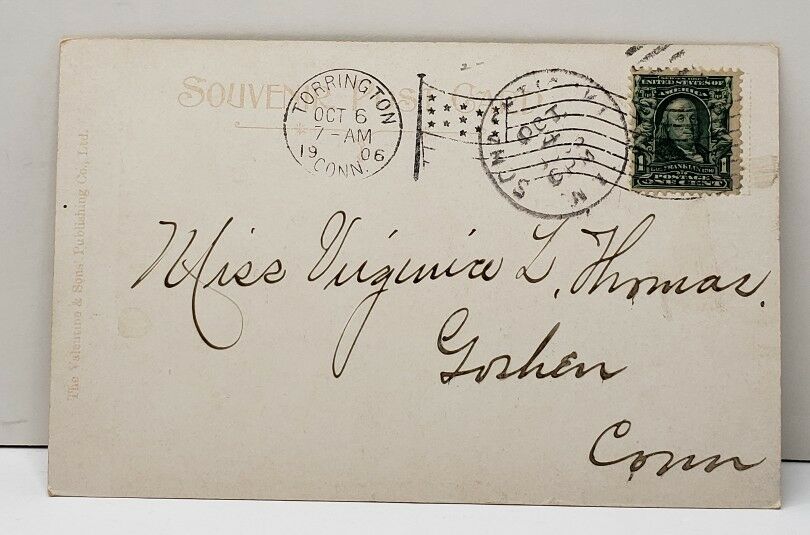 SOUVENIR POST CARD
TORRINGTON
OCT 6
7-AM
1906
CONN.
OCT
4
N.Y.
UNITED STATES OF
AMERICA
FRANKLIN
1 POSTAGE 1
ONE CENT
Miss Virginia L. Thomas.
Goshen
Conn
The Valentine & Sons Publishing Co., Ltd.